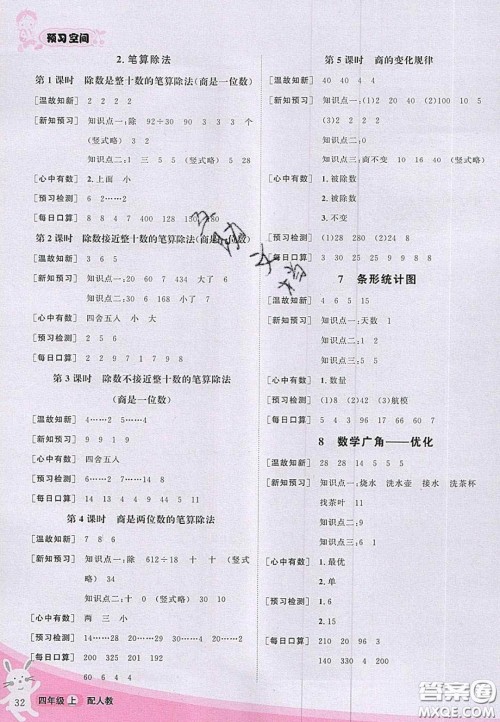 预习空间
2. 笔算除法
第1课时 除数是整十数的笔算除法(商是一位数)
[温故知新] 2 2 2 2
[新知预习] 知识点一:除 92÷30 9 3 3 3 个
(竖式略)
知识点二:1 3 5 5 (竖式略) 5 28
[心中有数] 2.上面 小
[预习检测] 2 3 6 5
[每日口算] 8 8 4 7 400 128 150 480 180
第2课时 除数接近整十数的笔算除法(商是一位数)
[温故知新] 3 4 5 4
[新知预习] 知识点一:20 60 207 434 大了 6
知识点二:200 7 7
[心中有数] 四舍五入 小 大
[预习检测] 4 6 6 5
[每日口算] 8 9 6 6 8 9 7 8 9
第3课时 除数不接近整十数的笔算除法
(商是一位数)
[温故知新] 4……2 5……4
[新知预习] 9 9 6 6
[心中有数] 四舍五入
[预习检测] 6……2 7……19 8……14
[每日口算] 8 7 6 6 8 9 5 5 9
第4课时 商是两位数的笔算除法
[温故知新] 7 8 6
[新知预习] 知识点一:除 612÷18 十 十 (竖式
略) 34
知识点二:十 0 (竖式略) 30 10
[心中有数] 两 三 小
[预习检测] 14 36……15 20……6
[每日口算] 200 325 201 152 60 64
197 150 191
第5课时 商的变化规律
[温故知新] 40 40 4 4
[新知预习] 知识点一:(1)2 20 40 (2)2 100 10
5
知识点二:商不变 (1)4 8 (2)15 5
[心中有数] 1.被除数
2.被除数
3.不变
[预习检测] (1)28 280 (2)8 8
[每日口算] 24 8 9 3 90 7 8 14 15
7 条形统计图
[温故知新] 4 6 5 15
[新知预习] 知识点一:天数 1
知识点二:2
知识点三:5
[心中有数] 1.数量
[预习检测] (1)8 (2)42 (3)航模
[每日口算] 5 4 3 96 17 66 2 90 9
8 数学广角——优化
[温故知新] 18 28 38
[新知预习] 知识点一:烧水 洗水壶 接水 洗茶杯
找茶叶 11
知识点二:3 2 9
知识点三:6 1
[心中有数] 1.最优
2.单
[预习检测] 1.6
2.15
[每日口算] 200 9 150 4 4
140 5 9
32
四年级 上 配人教
答案圈
MXQE.COM